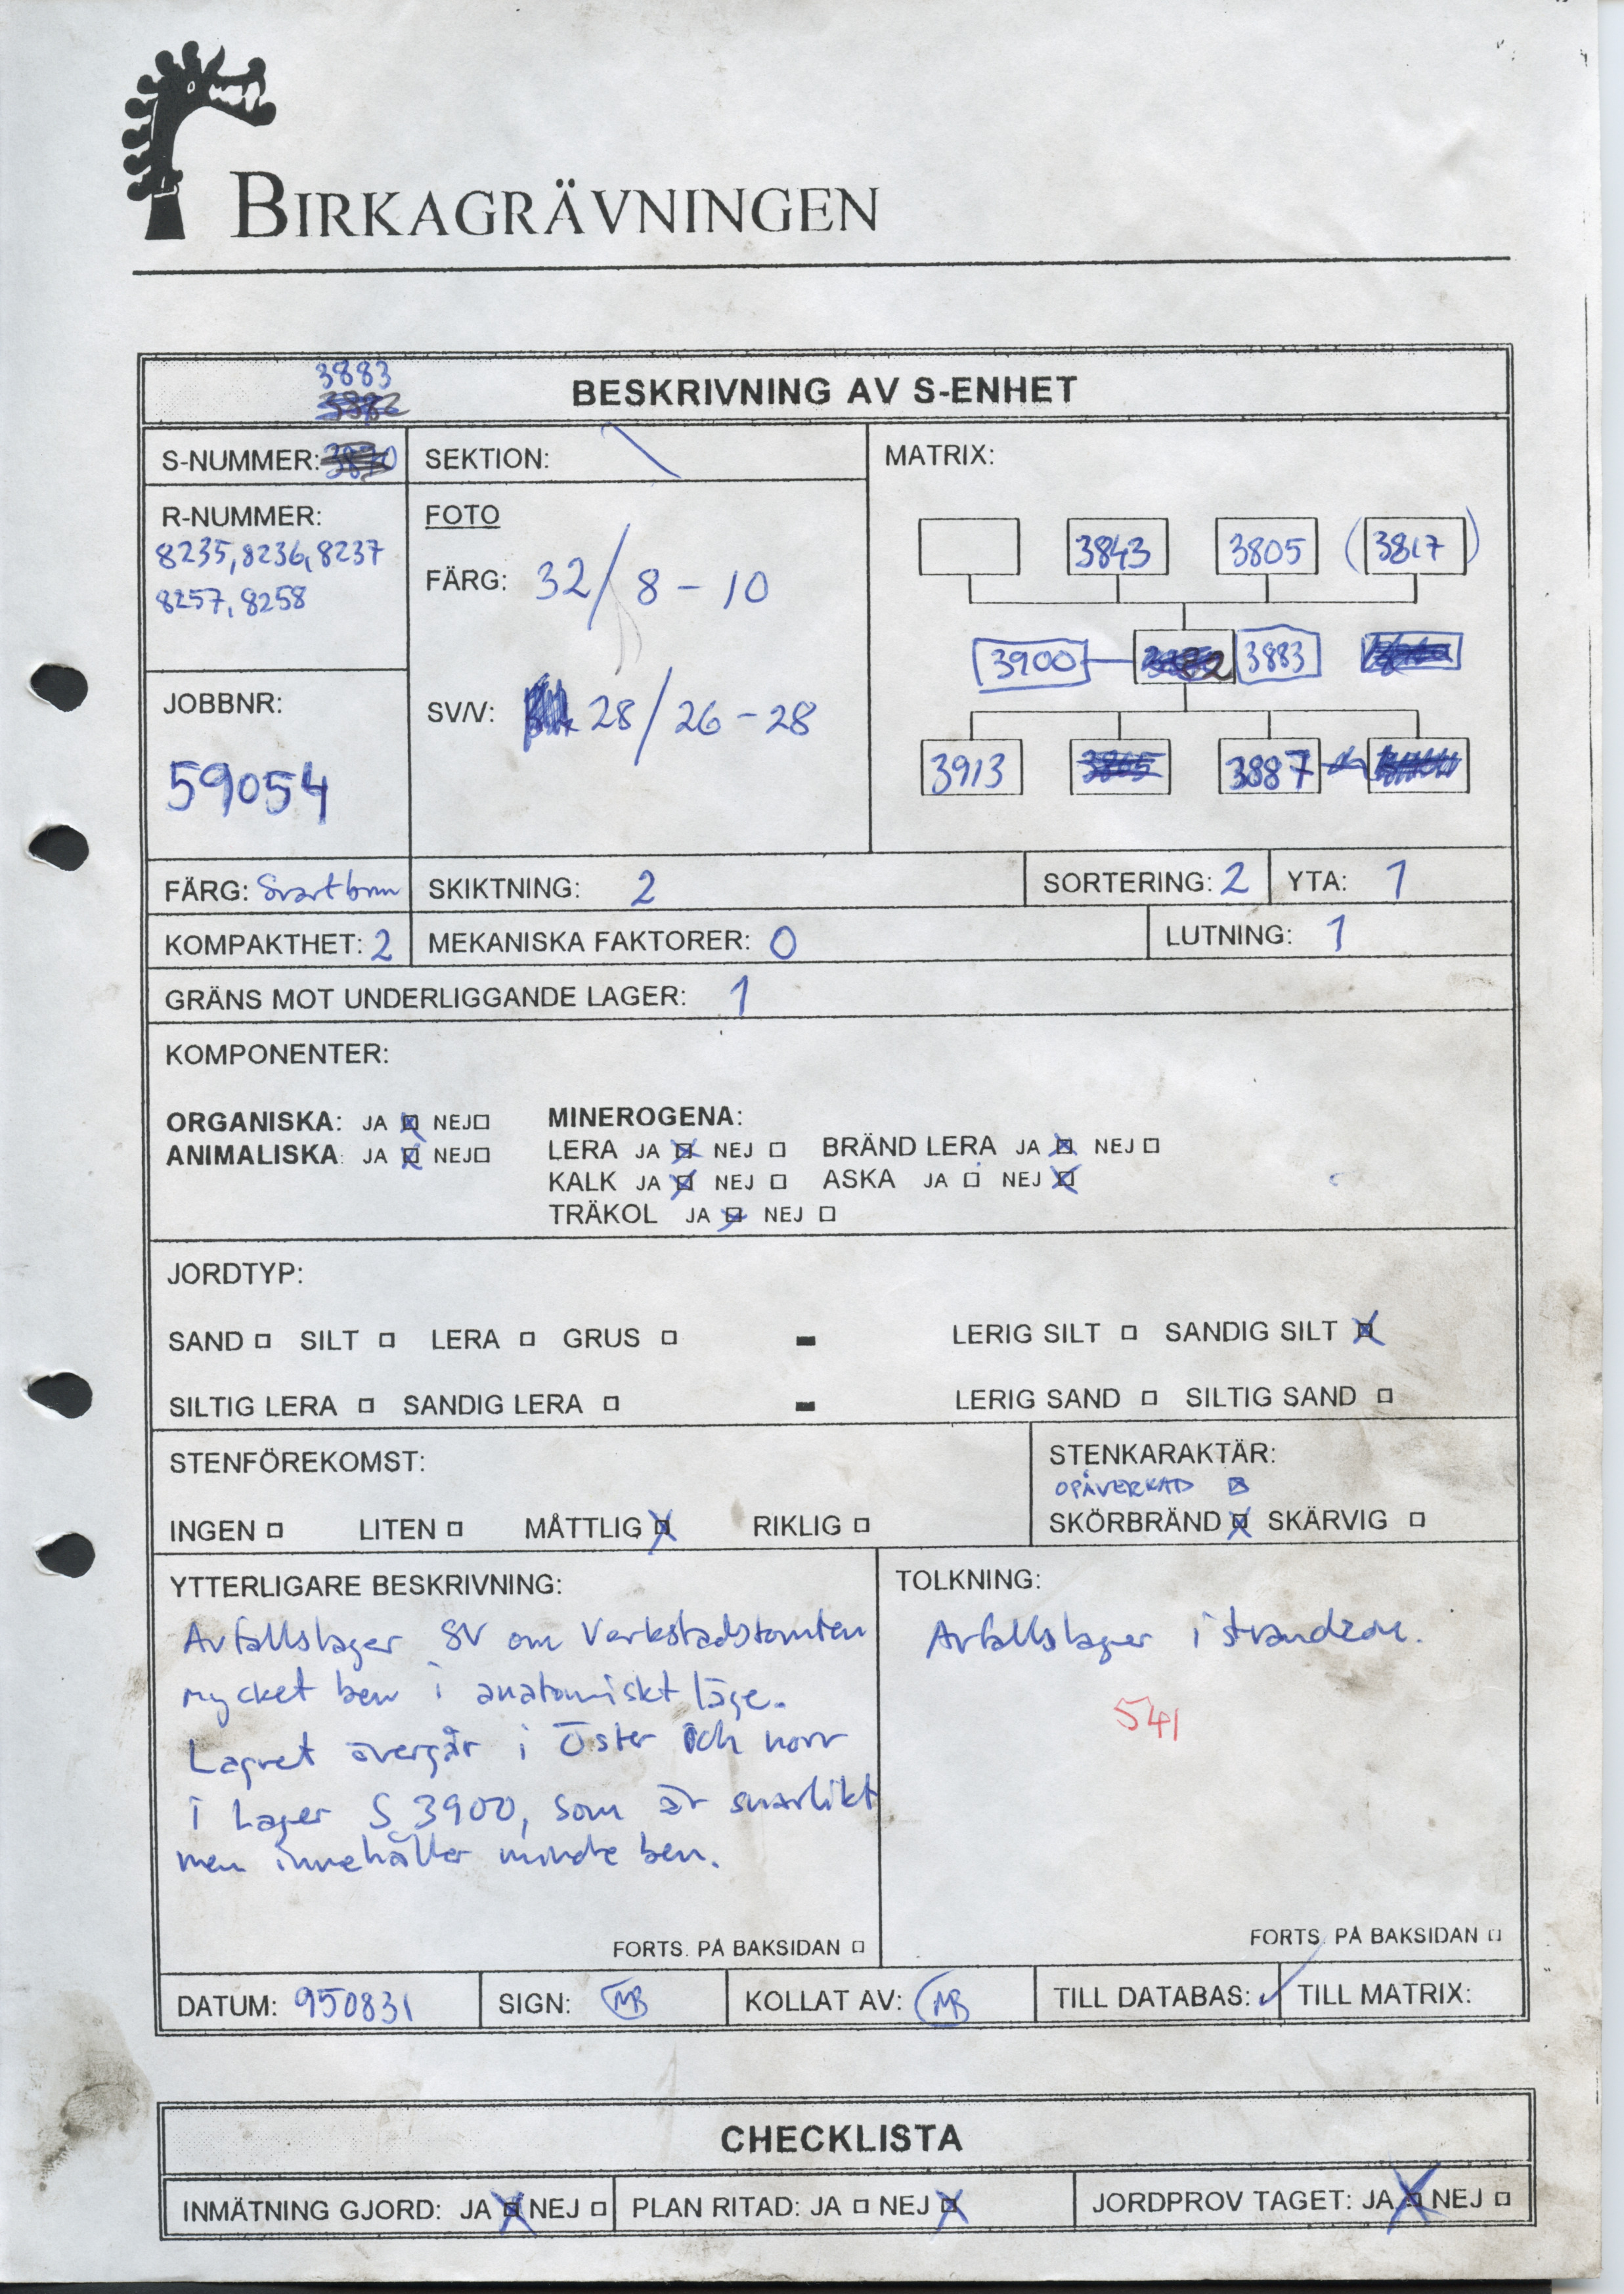 BIRKAGRÄVNINGEN
3883
BESKRIVNING AV S-ENHET
S-NUMMER:
SEKTION:
MATRIX:
R-NUMMER:
8235, 8236, 8237
8257, 8258
FOTO
FÄRG: 32/8-10
SV/V: 28/26-28
JOBBNR:
59054
3843 3805 (3817)
3900 3883
3913 3887
FÄRG: Svartbrun SKIKTNING: 2 SORTERING: 2 YTA: 1
KOMPAKTHET: 2 MEKANISKA FAKTORER: 0 LUTNING: 1
GRÄNS MOT UNDERLIGGANDE LAGER: 1
KOMPONENTER:
ORGANISKA: JA ☒ NEJ ☐ MINEROGENA:
ANIMALISKA: JA ☒ NEJ ☐ LERA JA ☒ NEJ ☐ BRÄND LERA JA ☒ NEJ ☐
KALK JA ☒ NEJ ☐ ASKA JA ☐ NEJ ☒
TRÄKOL JA ☒ NEJ ☐
JORDTYP:
SAND ☐ SILT ☐ LERA ☐ GRUS ☐ - LERIG SILT ☐ SANDIG SILT ☒
SILTIG LERA ☐ SANDIG LERA ☐ - LERIG SAND ☐ SILTIG SAND ☐
STENFÖREKOMST:
INGEN ☐ LITEN ☐ MÅTTLIG ☒ RIKLIG ☐
STENKARAKTÄR:
OPÅVERKAD ☒
SKÖRBRÄND ☒ SKÄRVIG ☐
YTTERLIGARE BESKRIVNING:
Avfallslager SV om Verkstadstomten
mycket ben i anatomiskt läge.
Lagret övergår i öster och norr
i Lager S 3900, som är snarlikt
men innehåller mindre ben.
FORTS. PÅ BAKSIDAN ☐
TOLKNING:
Avfallslager i strandzon.
541
FORTS. PÅ BAKSIDAN ☐
DATUM: 950831 SIGN: MB KOLLAT AV: MB TILL DATABAS: ✓ TILL MATRIX:
CHECKLISTA
INMÄTNING GJORD: JA ☒ NEJ ☐ PLAN RITAD: JA ☐ NEJ ☒ JORDPROV TAGET: JA ☒ NEJ ☐